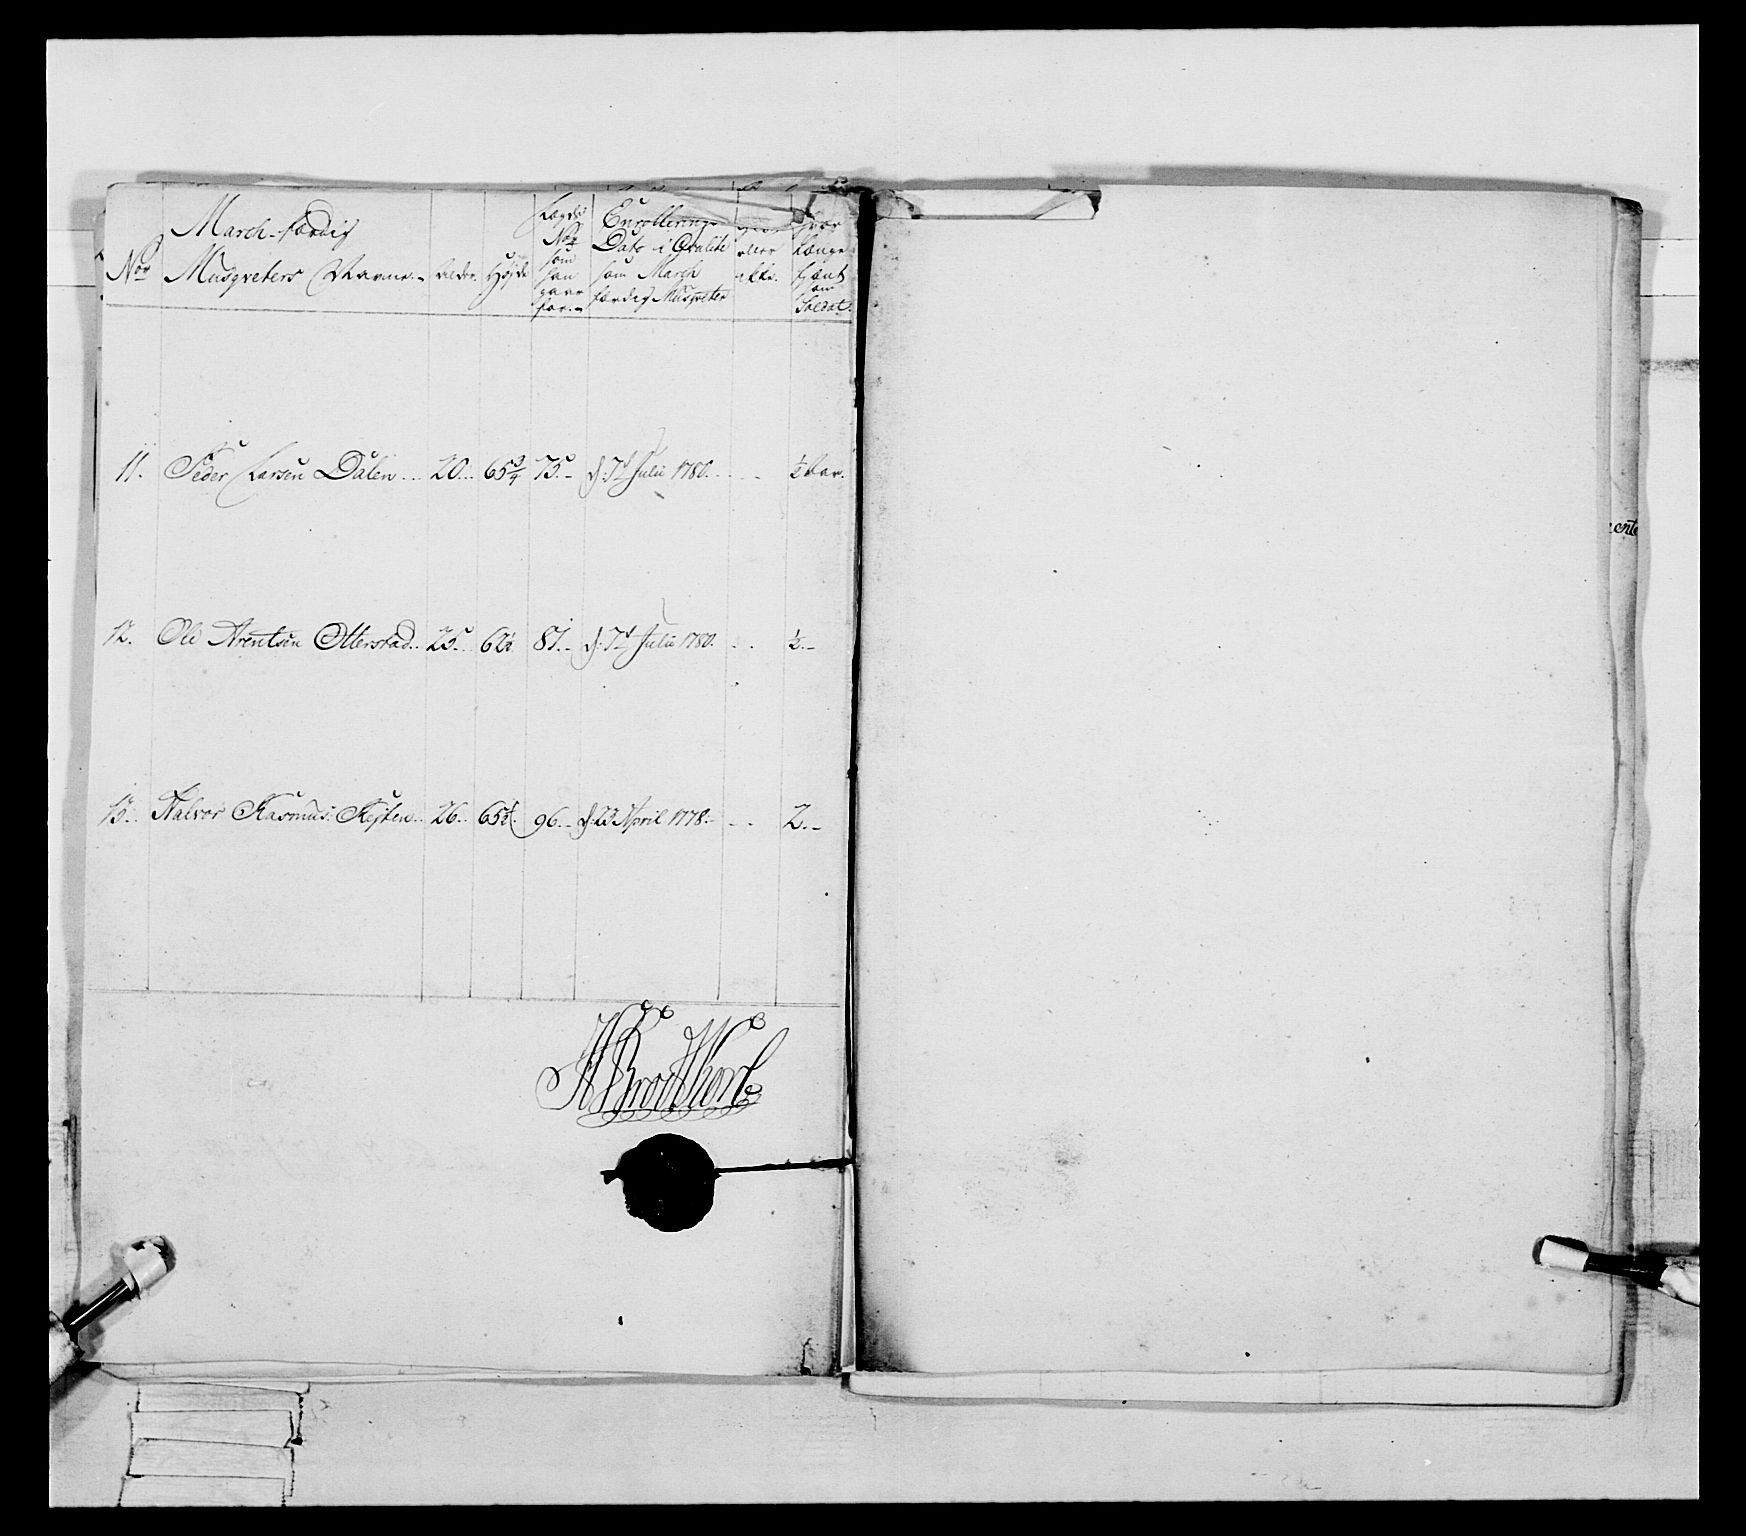 No
March-færdig
Musqveters Navne.-
Alder.
Højde
Lægds
No
som
han
gaar
for.-
Enrollering
Dato i Qvalite
som March
færdig Musqveter
eller
ikke.
hvor
længe
tjent
som
Soldat.
11. Peder Larsen Dalen... 20... 65¾ 75.- d: 7de Julii 1780.... ½ Aar.
12. Ole Arentsen Otterstad.. 25.. 62½ 81.- d: 7de Julii 1780. .. ½.-
13. Halvor Rasmus: .. 26.. 65½. 96.- d: 23 April 1778.- .. 2.-